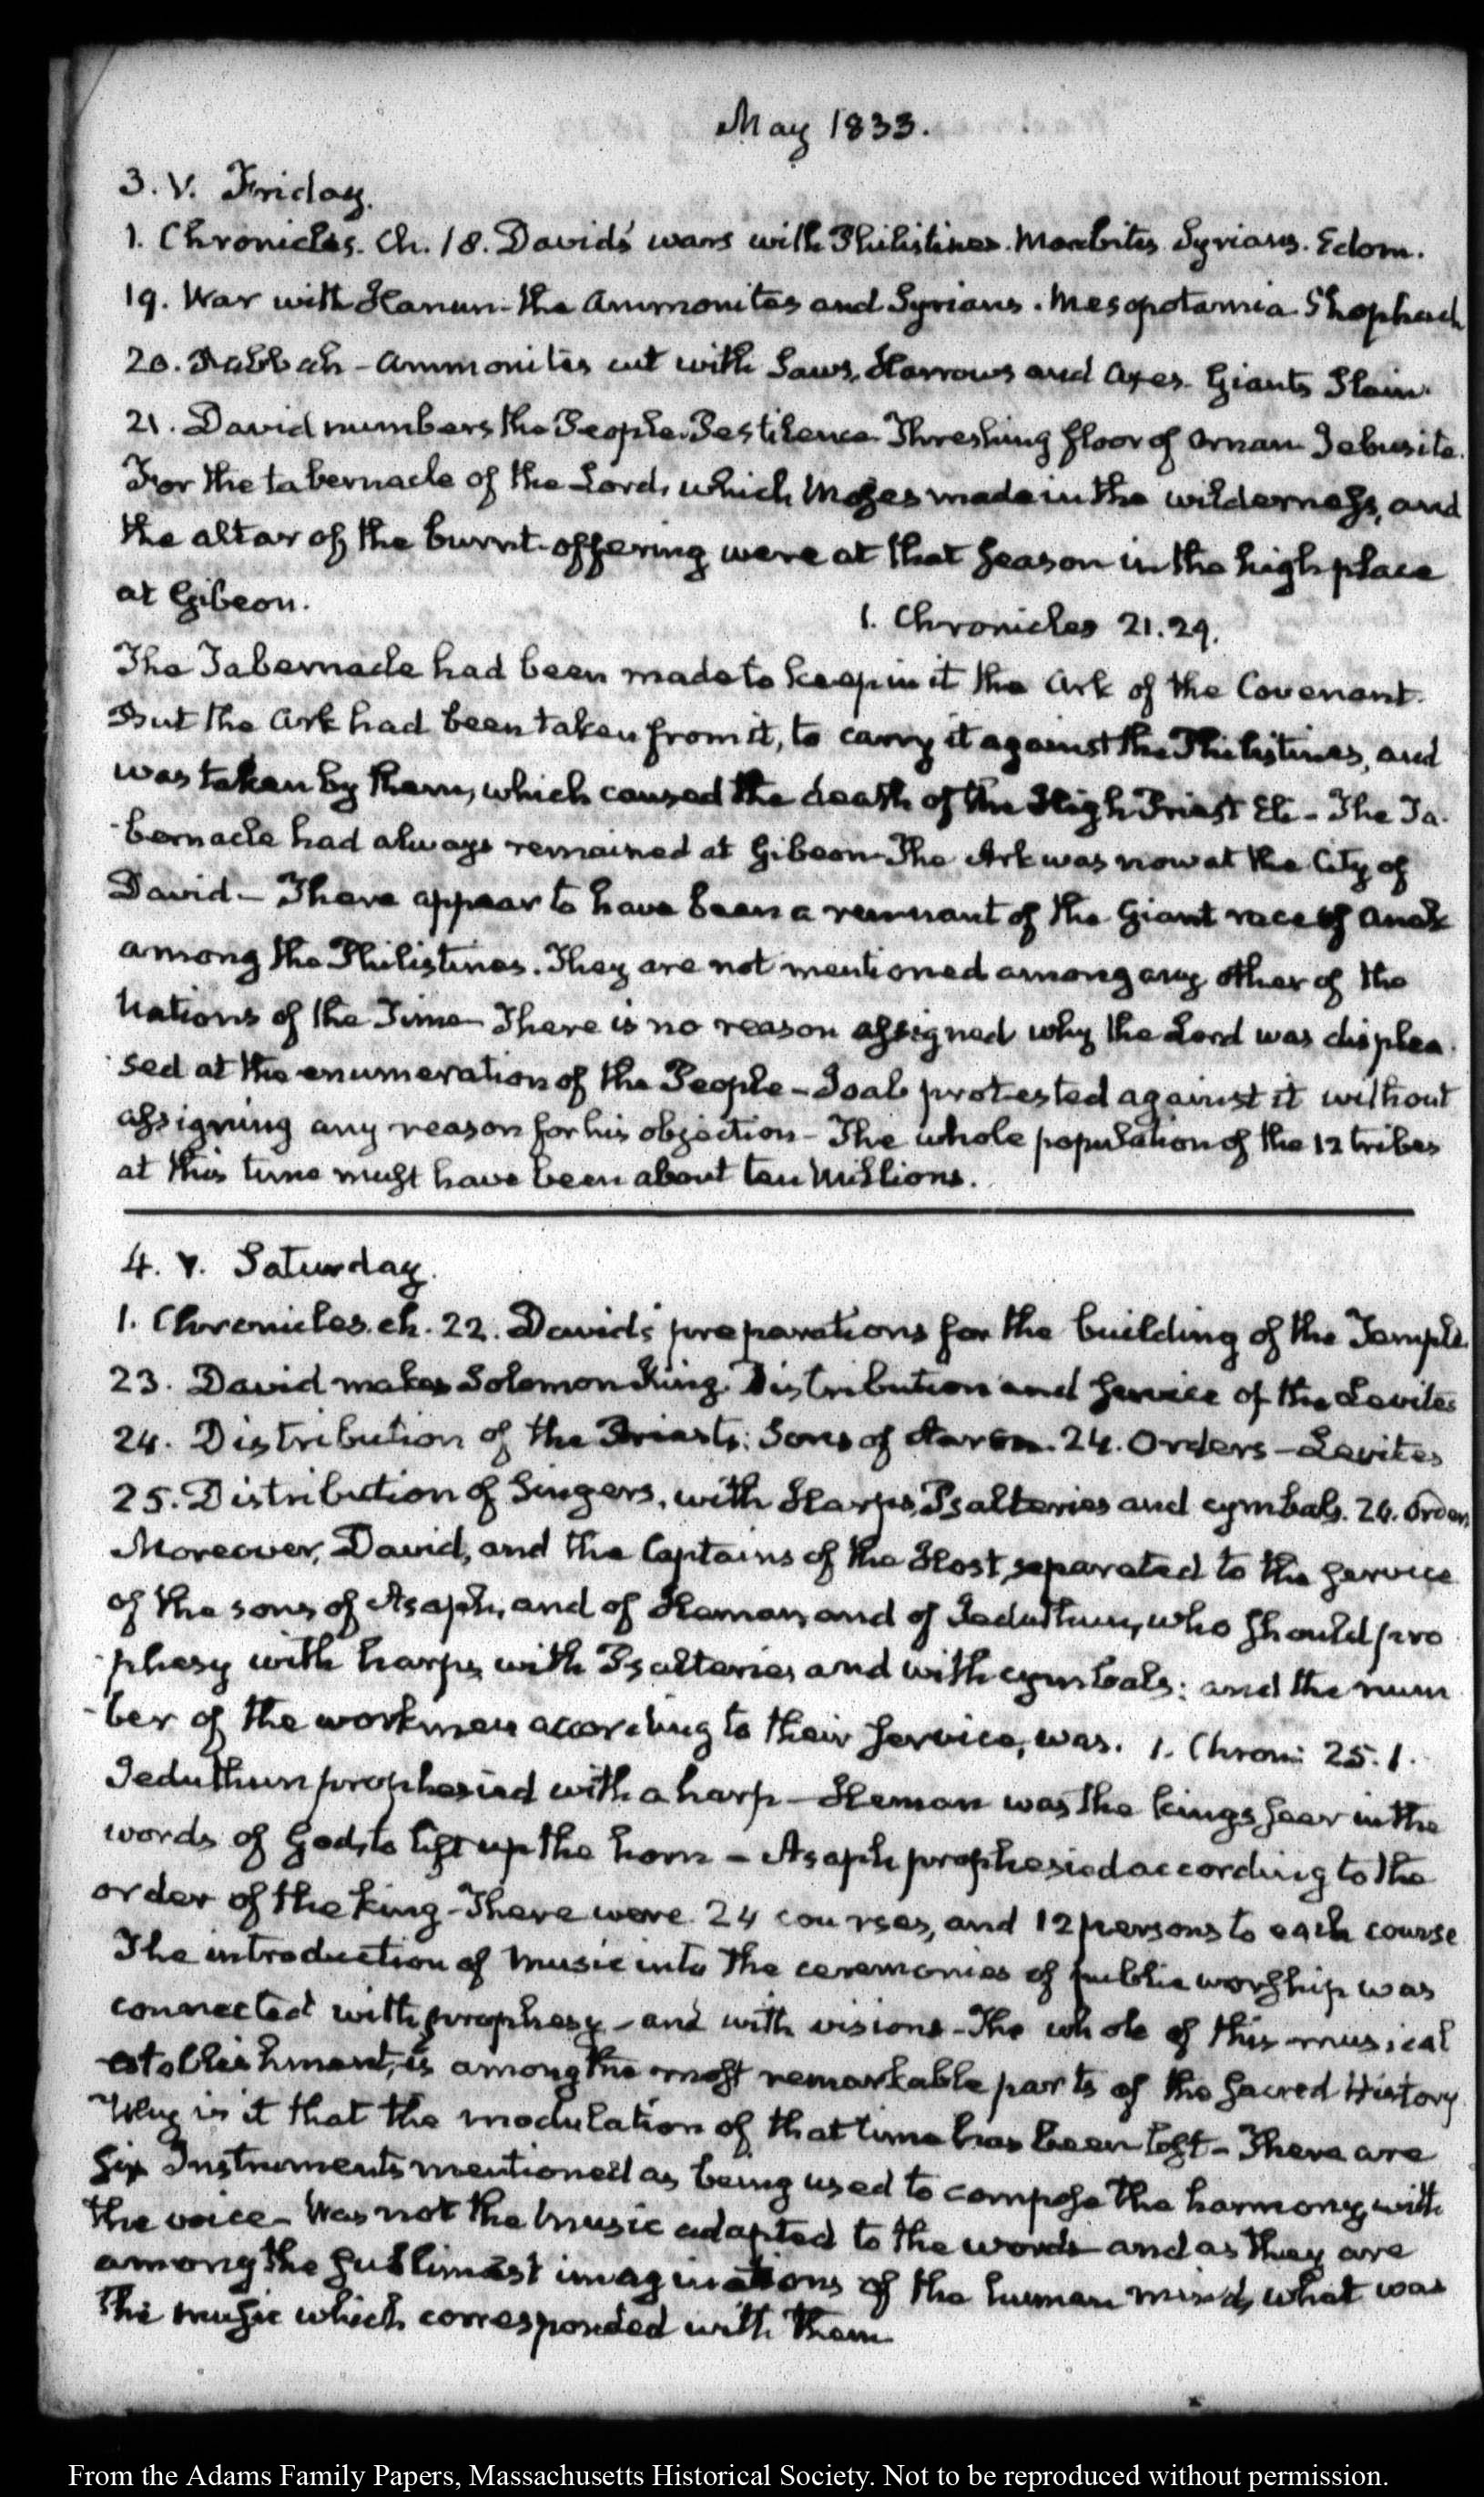 May 1833.
3. V. Friday.
1. Chronicles. Ch. 18. David's wars with Philistines. Moabites. Syrians. Edom.
19. War with Hanun - the Ammonites and Syrians. Mesopotamia. Shophach
20. Rabbah - Ammonites cut with Saws, Harrows and Axes. Giants Slain.
21. David numbers the People. Pestilence. Threshing floor of Ornan Jebusite.
For the tabernacle of the Lord, which Moses made in the wilderness, and
the altar of the burnt-offering were at that season in the high place
at Gibeon.
1. Chronicles 21.29.
The Tabernacle had been made to keep in it the Ark of the Covenant.
But the Ark had been taken from it, to carry it against the Philistines, and
was taken by them, which caused the death of the High Priest Eli - The Ta-
bernacle had always remained at Gibeon - The Ark was now at the City of
David - There appear to have been a remnant of the Giant race of Anak
among the Philistines. They are not mentioned among any other of the
Nations of the Time - There is no reason assigned why the Lord was displea-
sed at the enumeration of the People - Joab protested against it without
assigning any reason for his objection - The whole population of the 12 tribes
at this time must have been about ten Millions.
4. V. Saturday.
1. Chronicles. ch. 22. David's preparations for the building of the Temple.
23. David makes Solomon King. Distribution and service of the Levites
24. Distribution of the Priests: Sons of Aaron. 24. Orders - Levites
25. Distribution of Singers, with Harps, Psalteries and cymbals. 24. Orders
Moreover, David, and the Captains of the Host, separated to the service
of the sons of Asaph, and of Heman, and of Jeduthun, who should pro-
phesy with harps, with Psalteries, and with cymbals: and the num-
ber of the workmen according to their service, was. 1. Chron: 25.1.
Jeduthun prophesied with a harp - Heman was the kings seer in the
words of God, to lift up the horn - Asaph prophesied according to the
order of the king - There were 24 courses, and 12 persons to each course
The introduction of Music into the ceremonies of public worship was
connected with prophesy - and with visions - The whole of this musical
establishment, is among the most remarkable parts of the Sacred History
Why is it that the modulation of that time has been lost - There are
six Instruments mentioned as being used to compose the harmony, with
the voice - Was not the Music adapted to the words - and as they are
among the sublimest imaginations of the human mind, what was
the music which corresponded with them
From the Adams Family Papers, Massachusetts Historical Society. Not to be reproduced without permission.